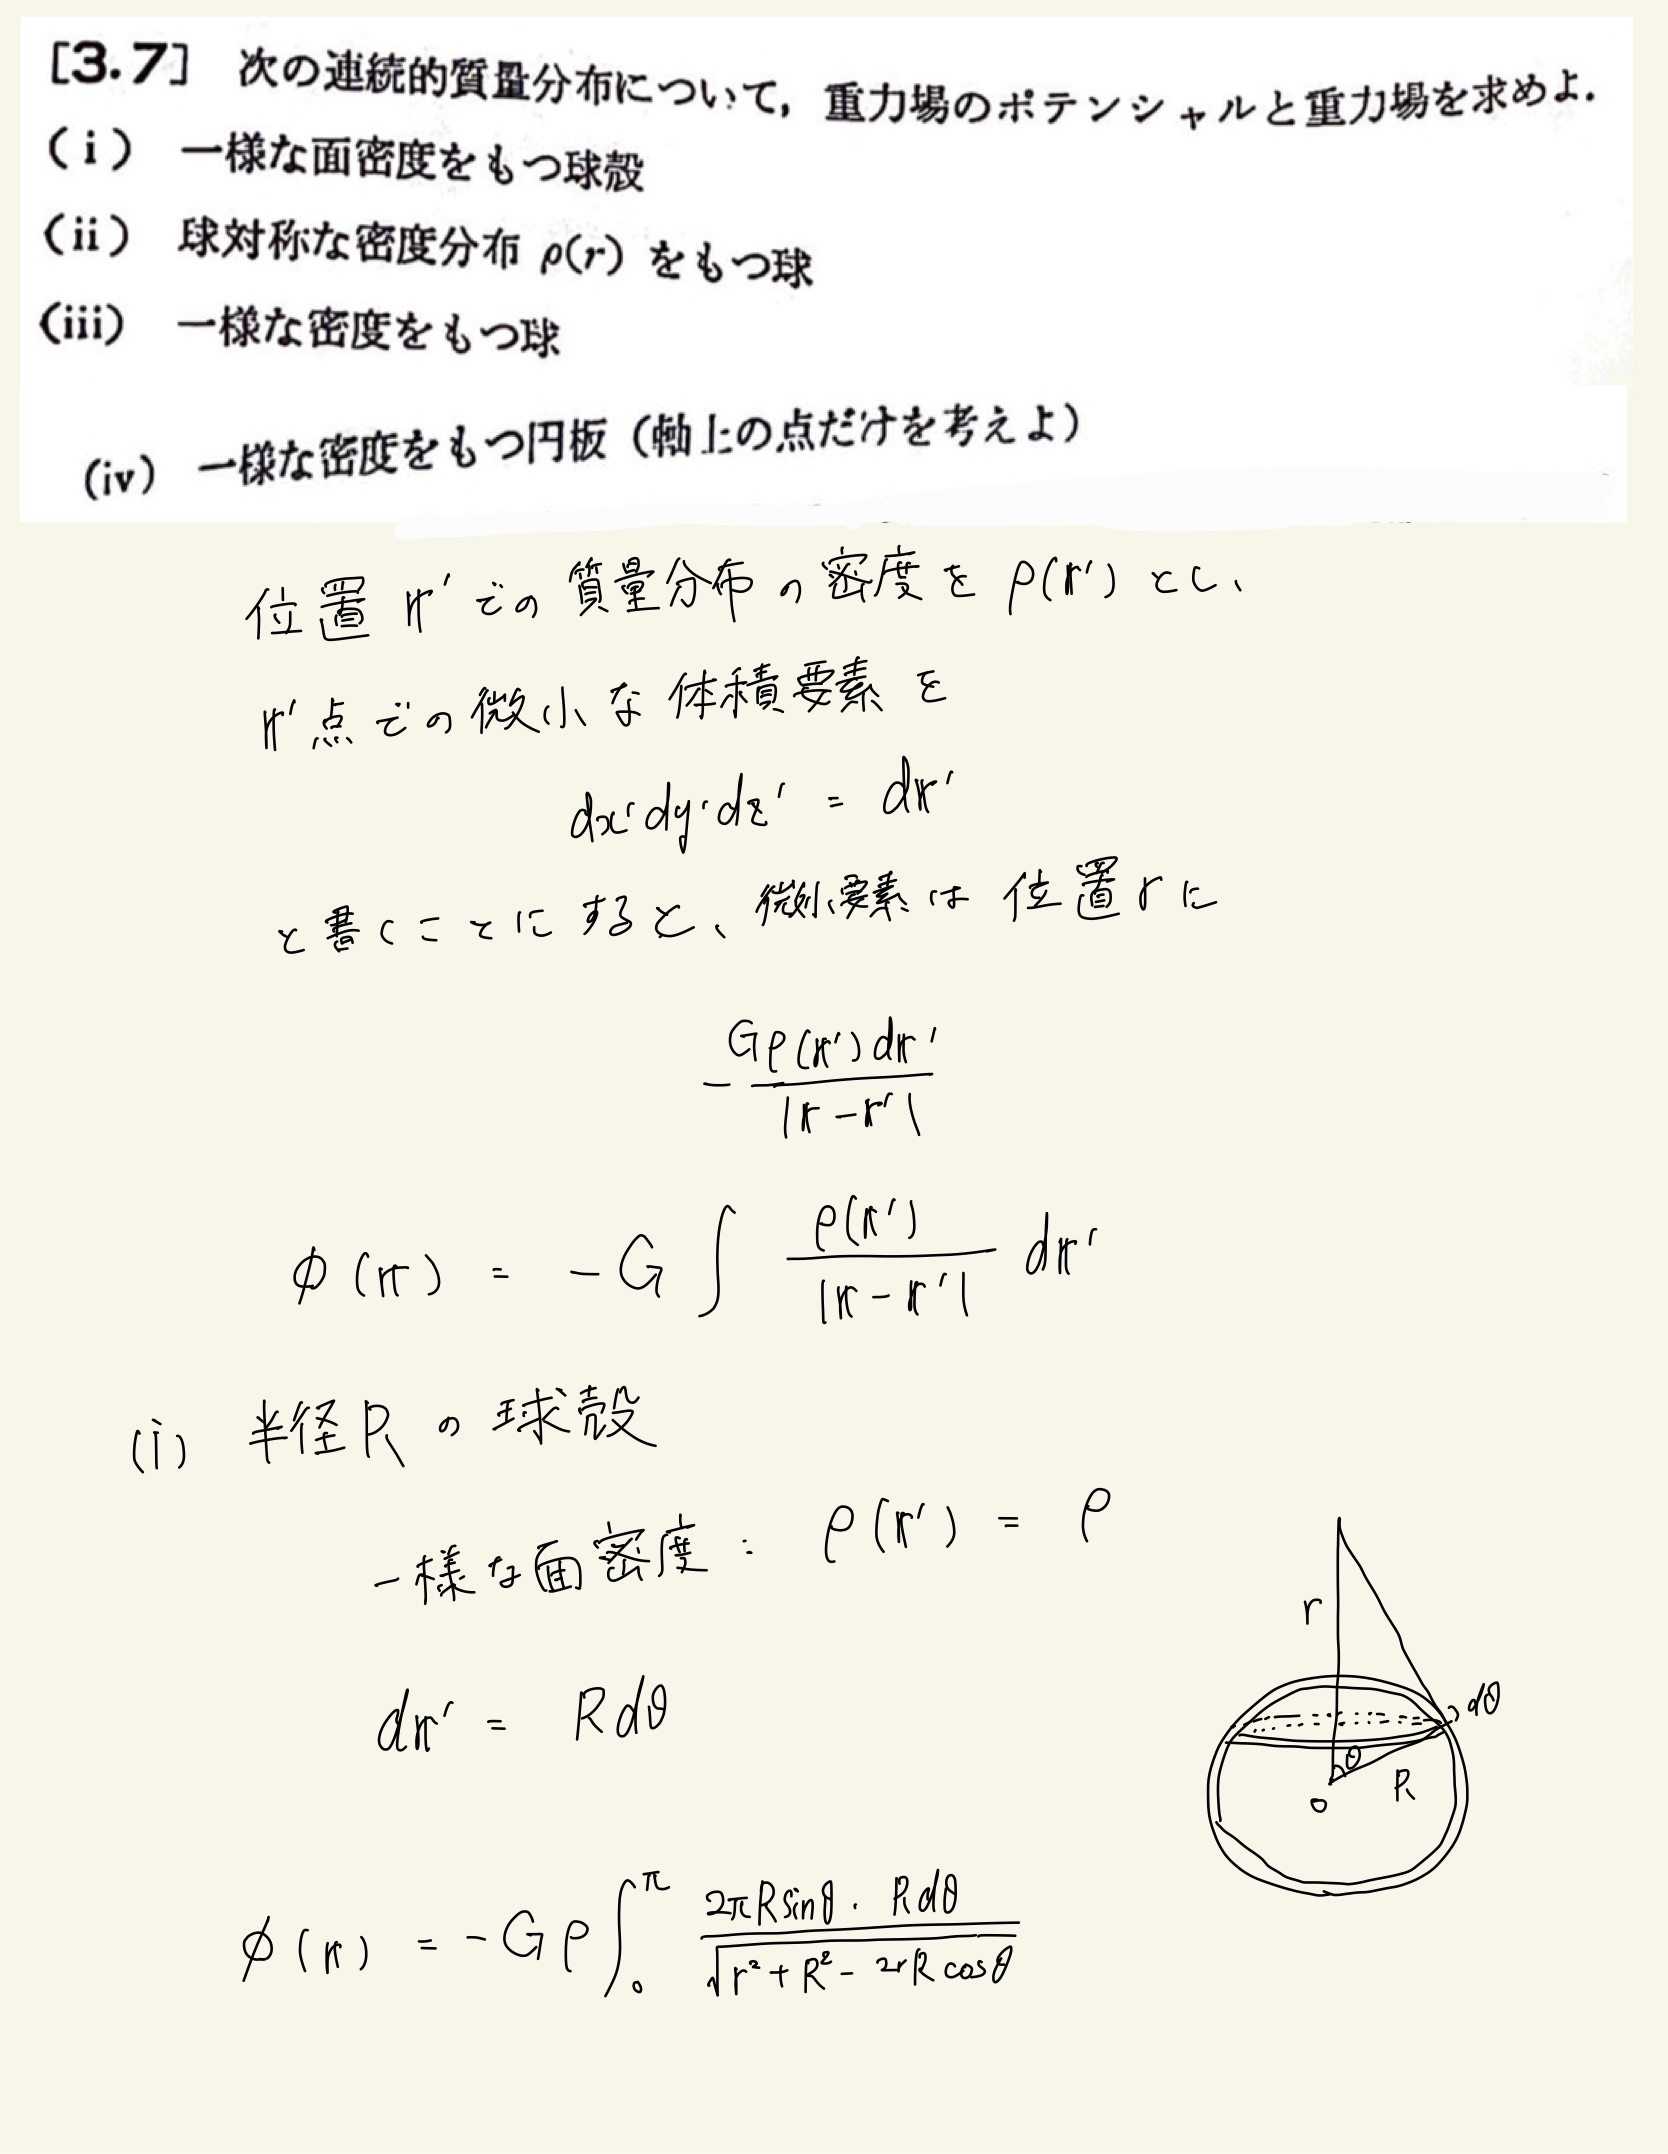 [3.7] 次の連続的質量分布について，重力場のポテンシャルと重力場を求めよ．
(i) 一様な面密度をもつ球殻
(ii) 球対称な密度分布 ρ(r) をもつ球
(iii) 一様な密度をもつ球
(iv) 一様な密度をもつ円板（軸上の点だけを考えよ）
位置 𝕣' での 質量分布の密度を ρ(𝕣') とし、
𝕣'点での微小な体積要素を
dx'dy'dz' = d𝕣'
と書くことにすると、微小要素は位置rに
- Gρ(𝕣')d𝕣' / |𝕣-𝕣'|
φ(𝕣) = -G ∫ ρ(𝕣') / |𝕣-𝕣'| d𝕣'
(i) 半径Rの球殻
一様な面密度: ρ(𝕣') = ρ
d𝕣' = Rdθ
r
dθ
θ
R
o
φ(𝕣) = -Gρ ∫₀^π 2πRsinθ・Rdθ / √r²+R²-2rRcosθ